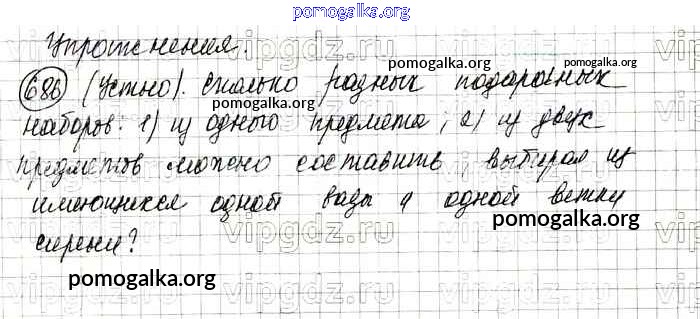 pomogalka.org
Упражнения.
686 (Устно). Сколько разных подарочных
наборов: 1) из одного предмета; 2) из двух
предметов можно составить, выбирая из
имеющихся одной вазы и одной ветки
сирени?
pomogalka.org
pomogalka.org
pomogalka.org
pomogalka.org
pomogalka.org
pomogalka.org